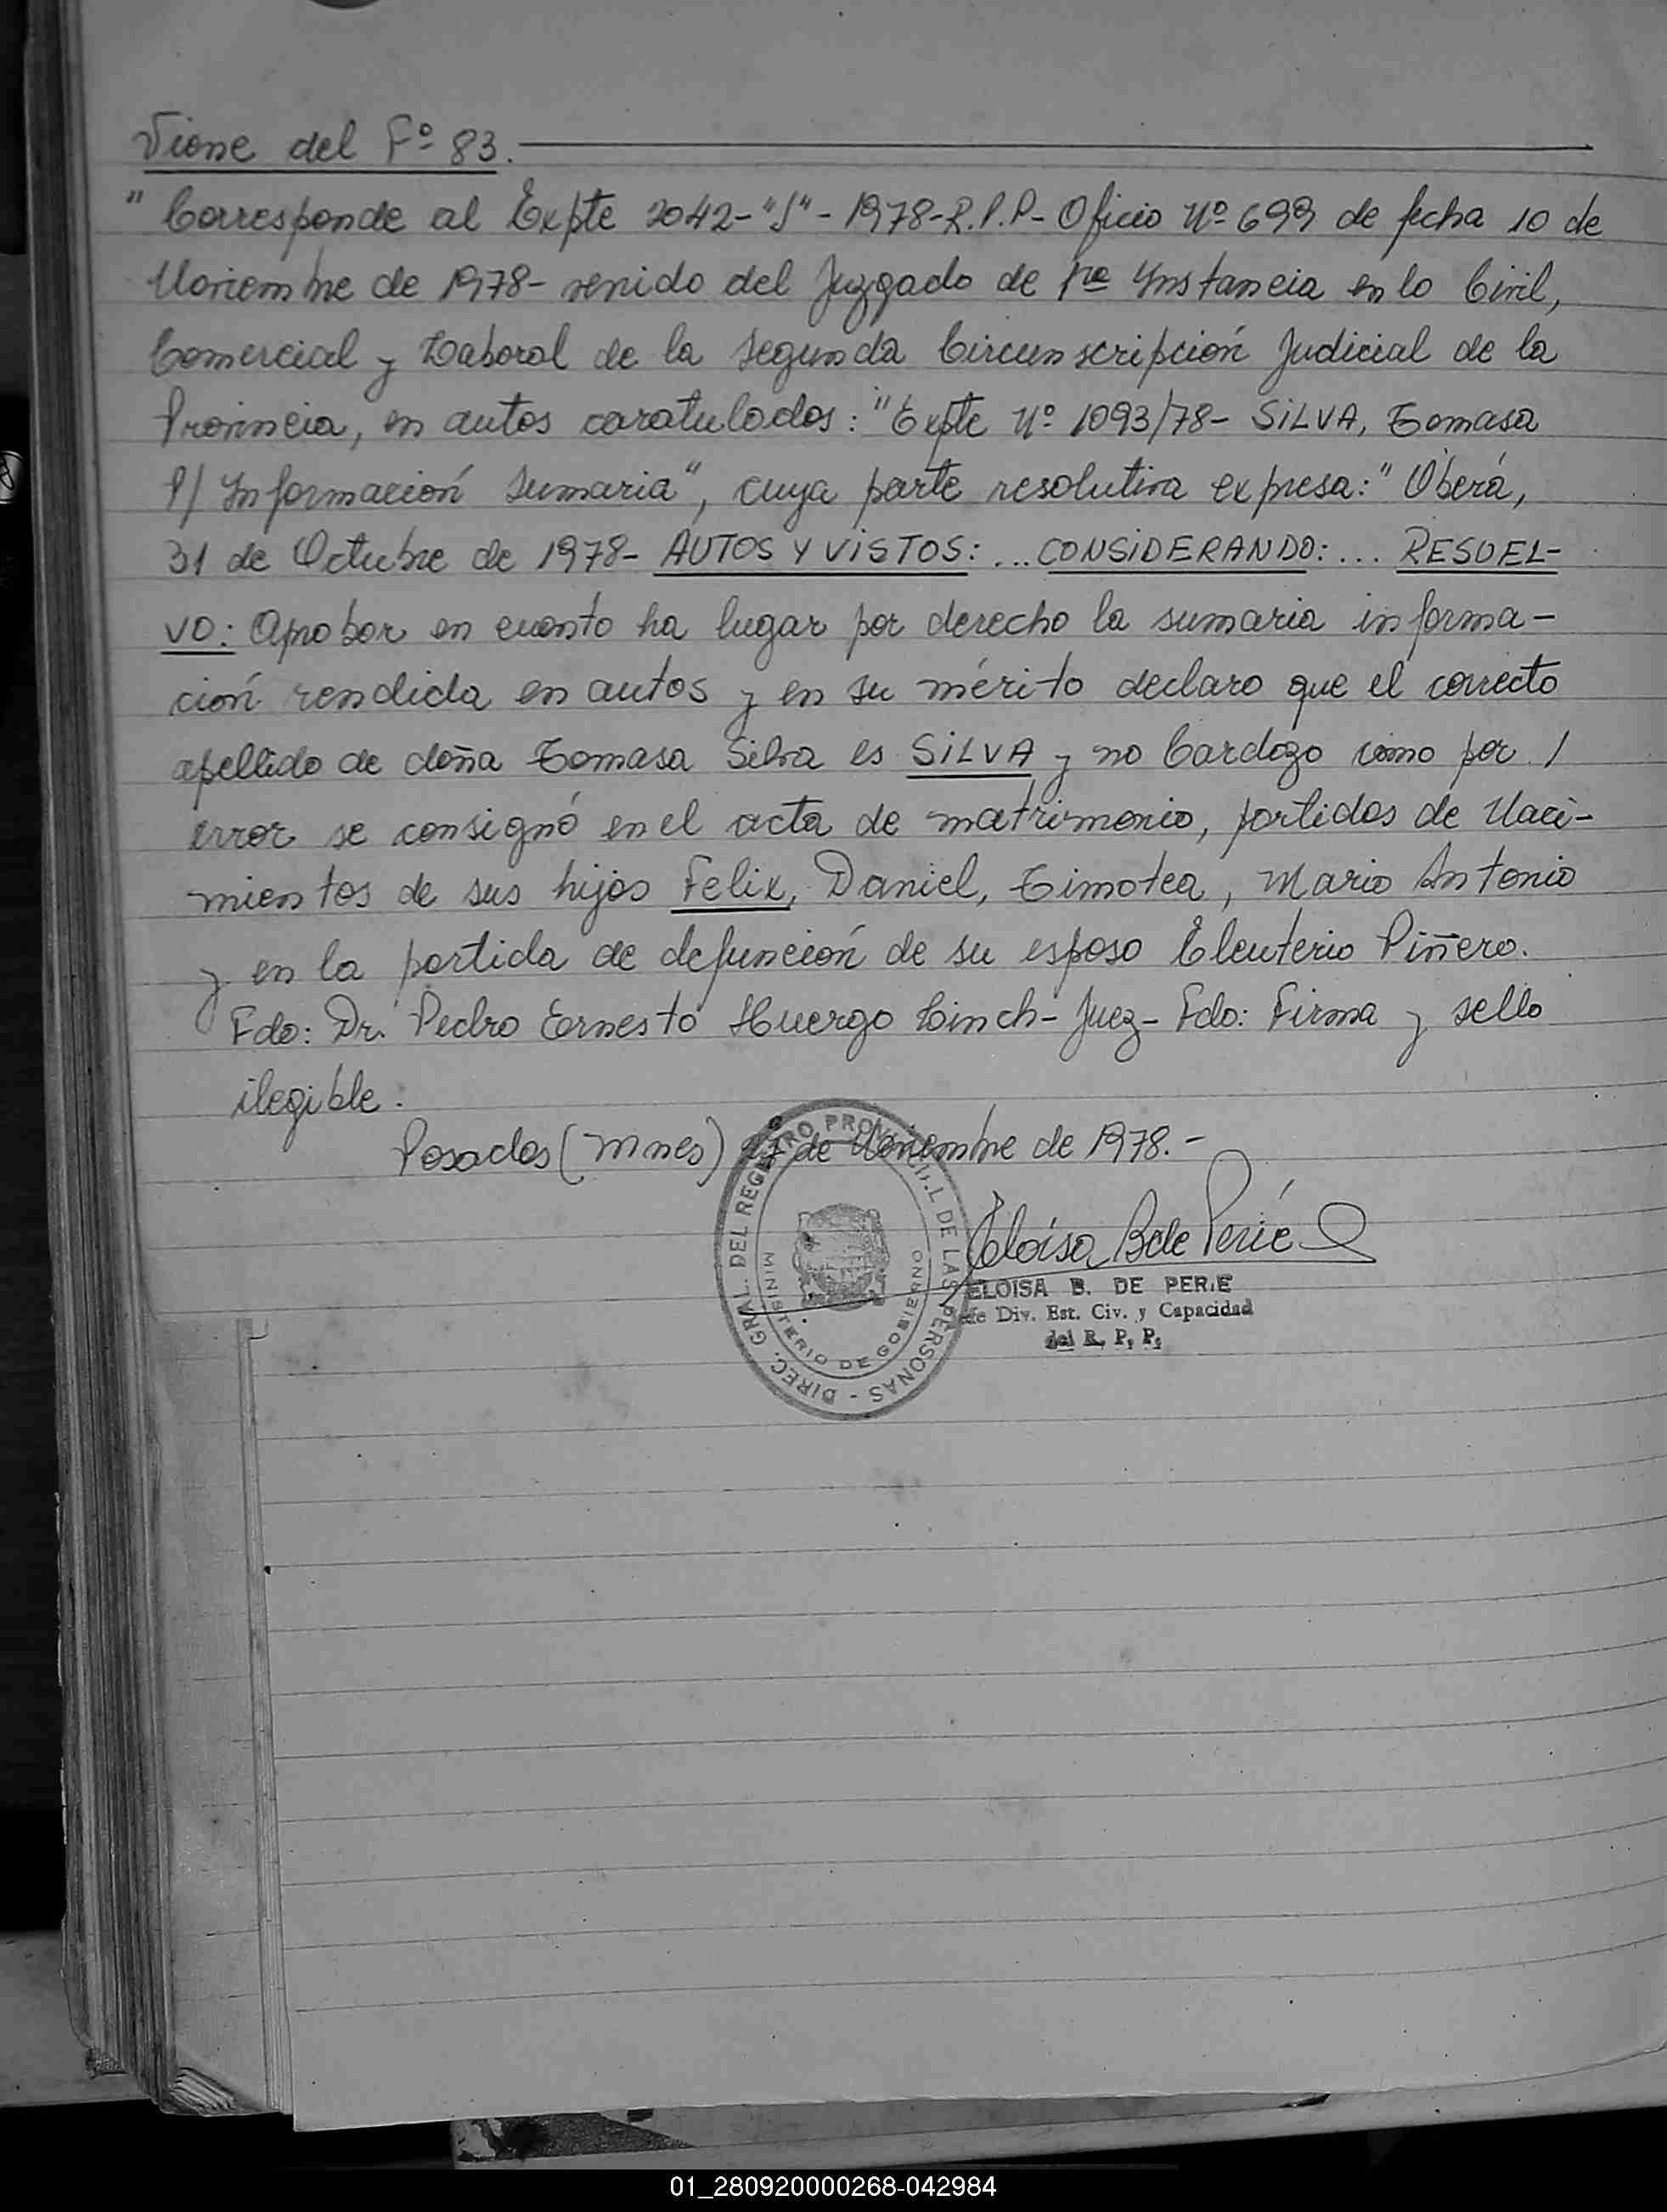 Viene del Fº 83.
"Corresponde al Expte 2042-"S"-1978-R.P.P- Oficio Nº 699 de fecha 10 de
Noviembre de 1978- venido del Juzgado de 1ra Instancia en lo Civil,
Comercial y Laboral de la Segunda Circunscripción Judicial de la
Provincia, en autos caratulados: "Expte Nº 1093/78- SILVA, Tomasa
P/ Información Sumaria", cuya parte resolutiva expresa: "Oberá,
31 de Octubre de 1978- AUTOS Y VISTOS: ... CONSIDERANDO: ... RESUEL-
VO: Aprobar en cuanto ha lugar por derecho la sumaria informa-
ción rendida en autos y en su mérito declaro que el correcto
apellido de doña Tomasa Silva es SILVA y no Cardozo como por /
error se consignó en el acta de matrimonio, partidas de Naci-
mientos de sus hijos Felix, Daniel, Timotea, Mario Antonio
y en la partida de defunción de su esposo Eleuterio Piñero.
Fdo: Dr. Pedro Ernesto Huergo Linch- Juez- Fdo: Firma y sello
ilegible.
Posadas (Mnes) 27 de Noviembre de 1978.-
DIREC. GRAL. DEL REGISTRO PROVINCIAL DE LAS PERSONAS -
MINISTERIO DE GOBIERNO
Eloisa B de Perié
ELOISA B. DE PERIE
Jefe Div. Est. Civ. y Capacidad
del R. P. P.
01_280920000268-042984